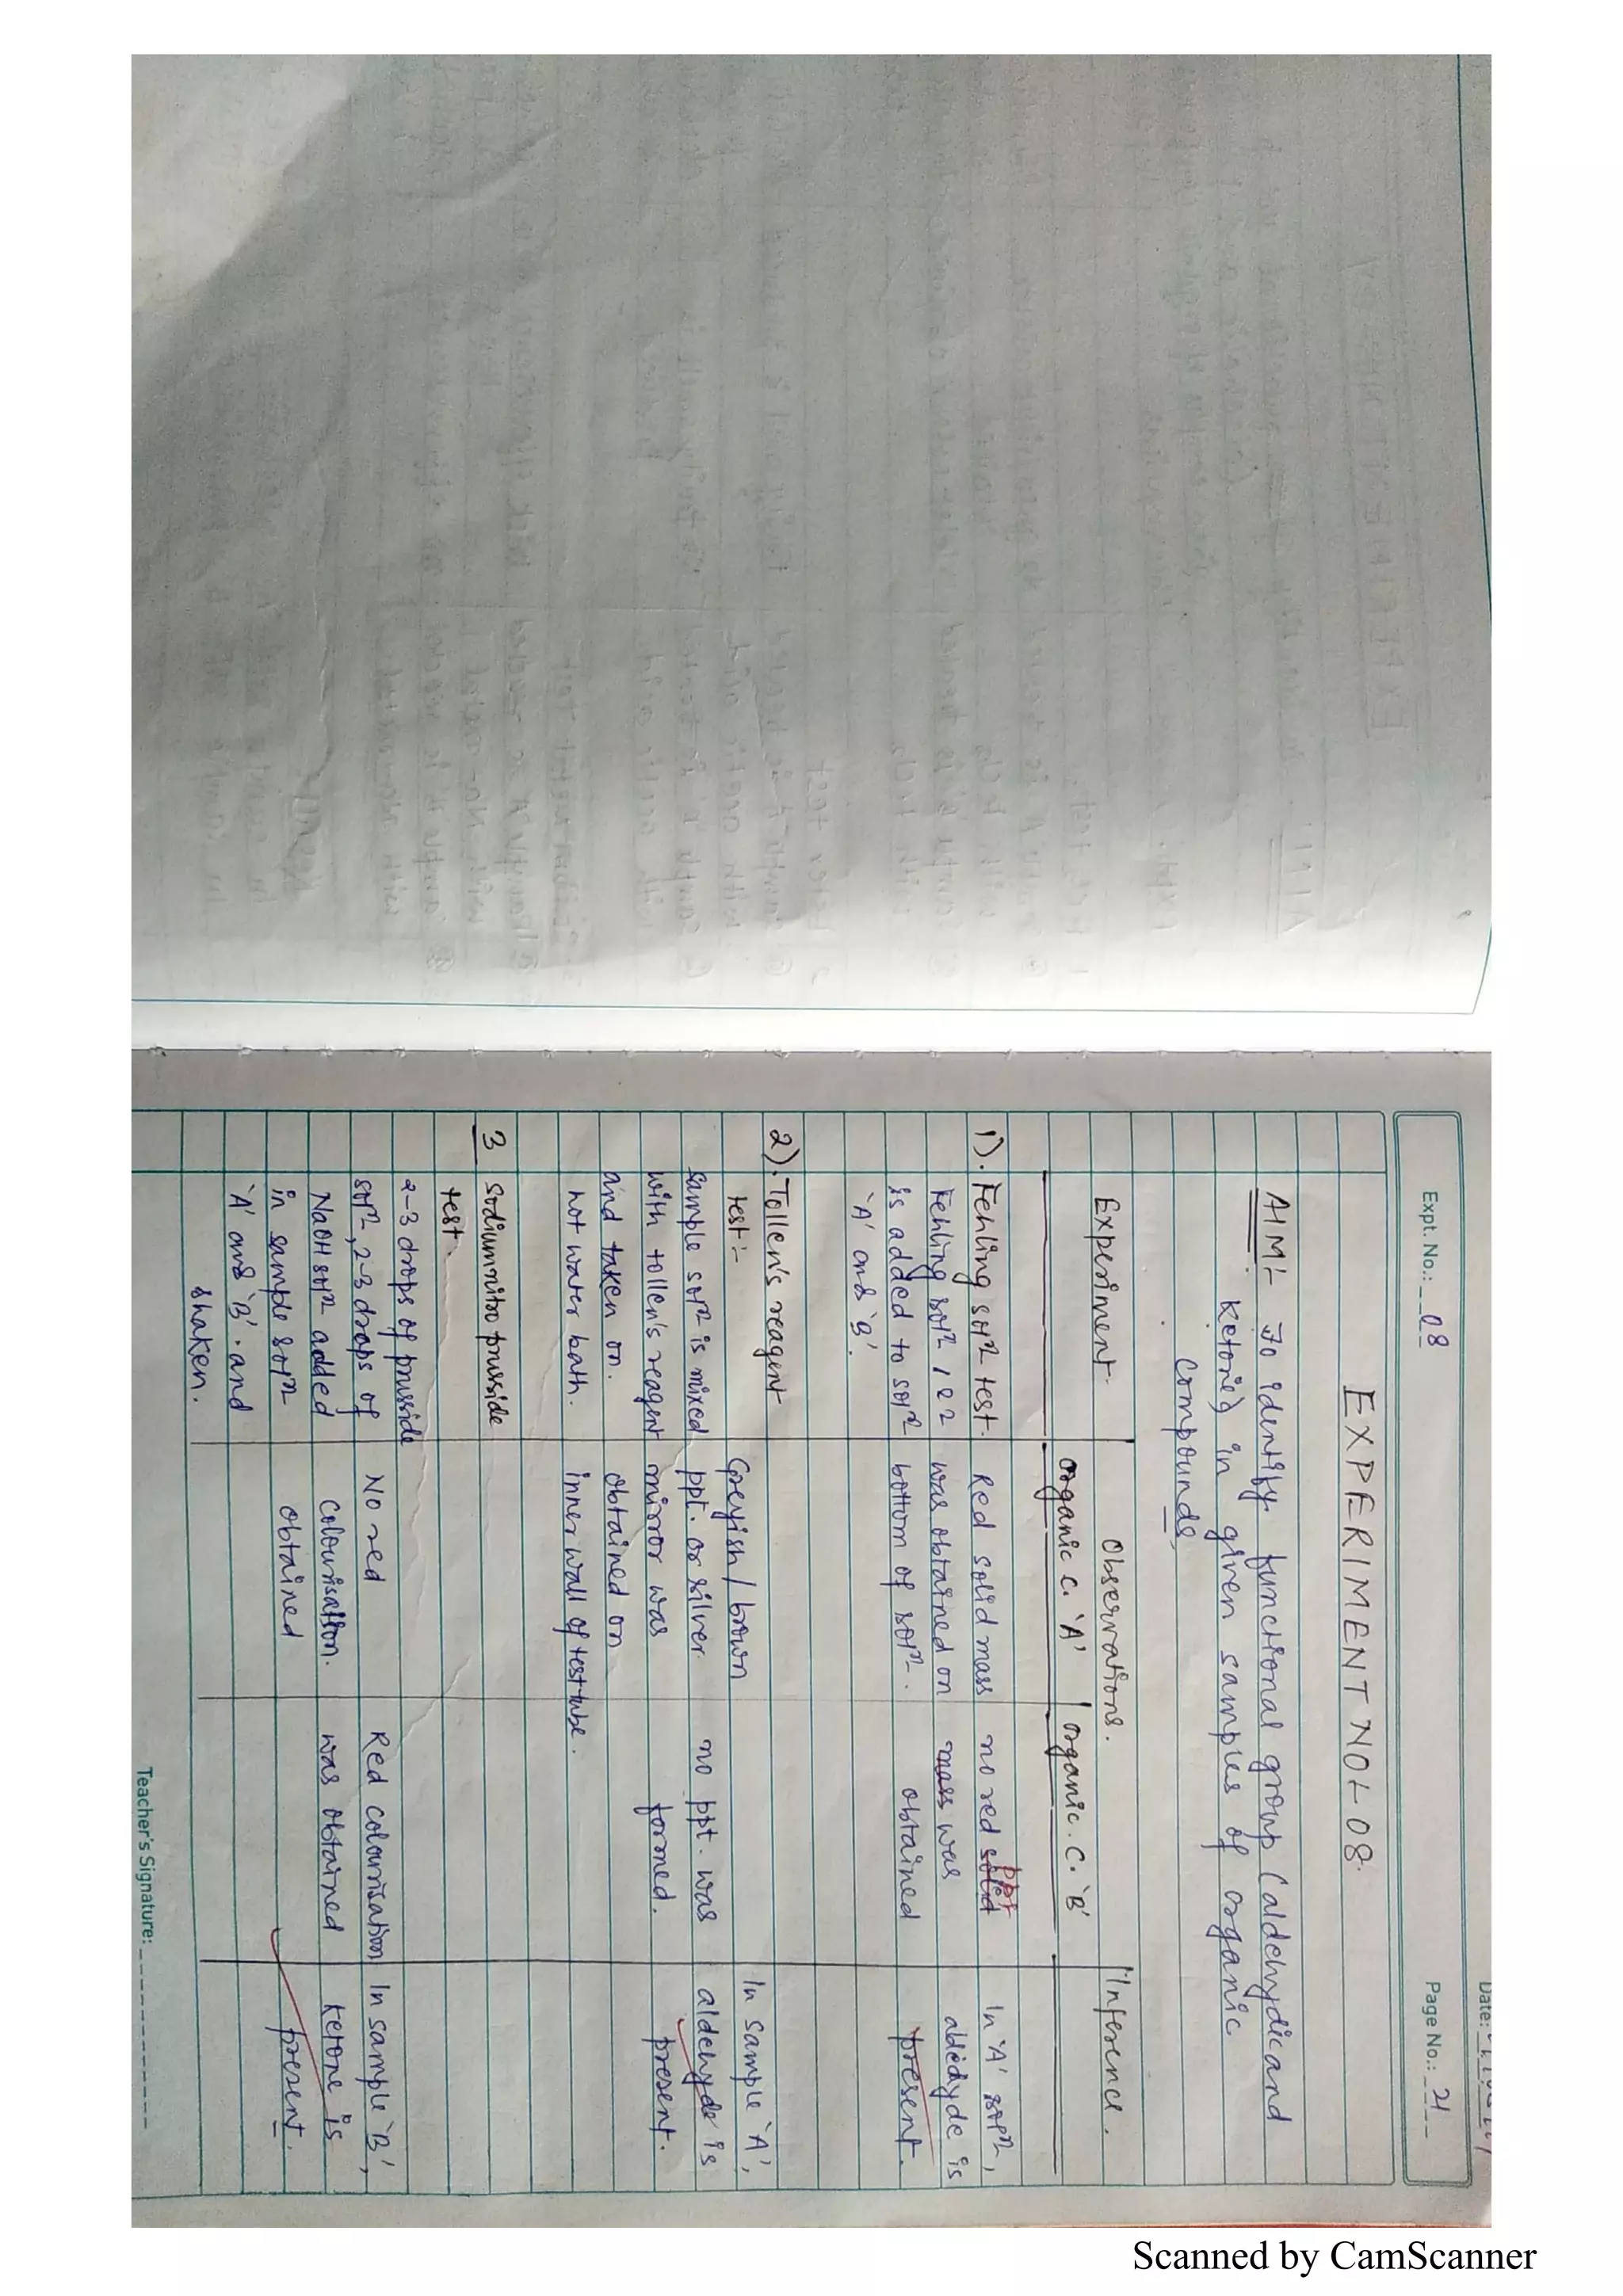 Expt. No.: 08
Page No.: 21
EXPERIMENT NO:- 08
AIM:- To identify functional group (aldehydic and
Ketonic) in given samples of organic
Compounds.
Experiment. Observations. Inference.
organic c. 'A' organic. C. 'B'
1). Fehling solⁿ test. Red solid mass no red solid ppt In 'A' solⁿ,
Fehling solⁿ 1 & 2 was obtained on mass was aldedyde is
is added to solⁿ bottom of solⁿ. obtained present.
'A' and 'B'.
2). Tollen's reagent
test:- Greyish / brown In sample 'A',
sample solⁿ is mixed ppt. or silver no ppt. was aldehyde is
with tollen's reagent mirror was formed. present.
and taken on. obtained on
hot water bath. inner wall of test tube.
3 sodiumnitro prusside
test.
2-3 drops of prusside
solⁿ, 2-3 drops of No red Red colourisation In sample 'B',
NaOH solⁿ added colourisation. was obtained ketone is
in sample solⁿ obtained present.
'A' and 'B'. and
shaken.
Teacher's Signature:
Scanned by CamScanner